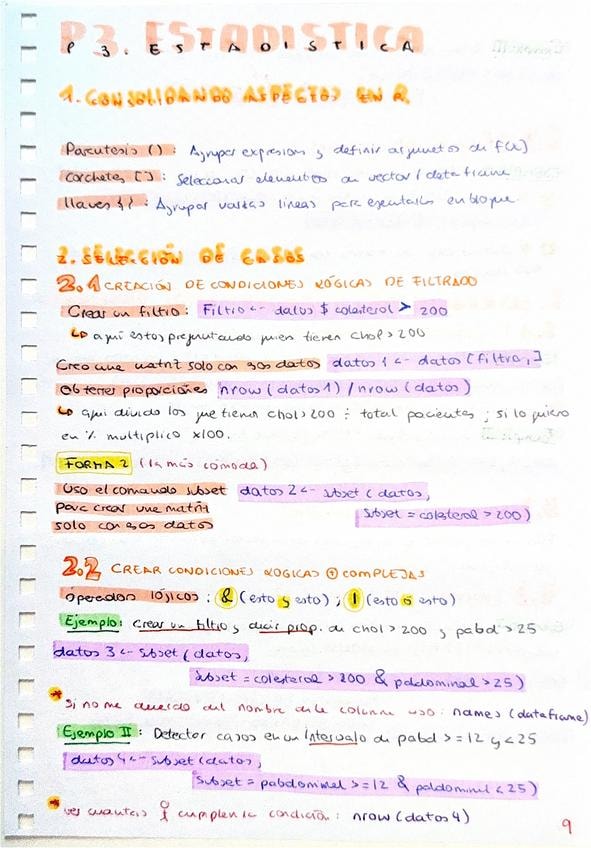 P3. ESTADISTICA
1. CONSOLIDANDO ASPECTOS EN R
Parentesis (): Agrupar expresiones y definir argumentos de f(x)
Corchetes []: Seleccionar elementos de vector / dataframe
llaves {}: Agrupar varias líneas para ejecutarlas en bloque
2. SELECCIÓN DE CASOS
2.1 CREACIÓN DE CONDICIONES LÓGICAS DE FILTRADO
Crear un filtro: Filtro <- datos $ colesterol > 200
↳ aquí estoy preguntando quien tienen chol > 200
Creo una matriz solo con esos datos datos1 <- datos[filtro,]
Obtener proporciones nrow(datos1) / nrow(datos)
↳ aquí divido los que tienen chol > 200 ÷ total pacientes; si lo quiero
en % multiplico x100.
FORMA 2 (la más cómoda)
Uso el comando subset datos2 <- subset(datos,
para crear una matriz
solo con esos datos subset = colesterol > 200)
2.2 CREAR CONDICIONES LÓGICAS ⊕ COMPLEJAS
operados lógicos: & (esto y esto); | (esto o esto)
Ejemplo: Crear un filtro y decir prop. de chol > 200 y pabd > 25
datos3 <- subset(datos,
subset = colesterol > 200 & pabdominal > 25)
* Si no me acuerdo del nombre de la columna uso: names(dataframe)
Ejemplo II: Detectar casos en un intervalo de pabd >= 12 y < 25
datos4 <- subset(datos,
subset = pabdominal >= 12 & pabdominal < 25)
* ver cuantas cumplen la condición: nrow(datos4)
9